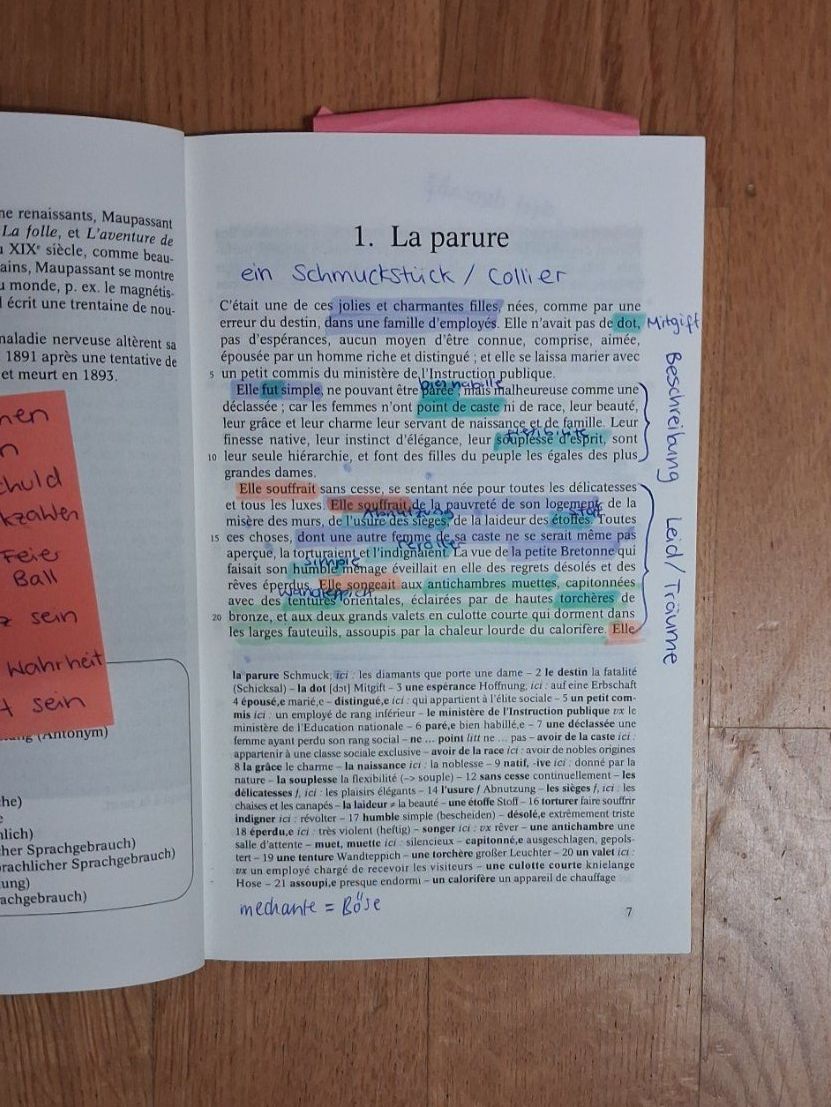 ne renaissants, Maupassant
La folle, et L'aventure de
u XIXe siècle, comme beau-
ains, Maupassant se montre
u monde, p. ex. le magnétis-
l écrit une trentaine de nou-
naladie nerveuse altèrent sa
1891 après une tentative de
et meurt en 1893.
nen
n
chuld
kzahlen
Feier
Ball
z sein
Wahrheit
t sein
(Antonym)
che)
e
nlich)
cher Sprachgebrauch)
prachlicher Sprachgebrauch)
ung)
achgebrauch)
1. La parure
ein Schmuckstück / Collier
C'était une de ces jolies et charmantes filles, nées, comme par une
erreur du destin, dans une famille d'employés. Elle n'avait pas de dot, Mitgift
pas d'espérances, aucun moyen d'être connue, comprise, aimée,
épousée par un homme riche et distingué ; et elle se laissa marier avec
5 un petit commis du ministère de l'Instruction publique.
bien habillé
Elle fut simple, ne pouvant être parée, mais malheureuse comme une
déclassée ; car les femmes n'ont point de caste ni de race, leur beauté,
leur grâce et leur charme leur servant de naissance et de famille. Leur
flexibilité
finesse native, leur instinct d'élégance, leur souplesse d'esprit, sont
10 leur seule hiérarchie, et font des filles du peuple les égales des plus
grandes dames.
Elle souffrait sans cesse, se sentant née pour toutes les délicatesses
et tous les luxes. Elle souffrait de la pauvreté de son logement, de la
Abnutzung Stoff
misère des murs, de l'usure des sièges, de la laideur des étoffes. Toutes
15 ces choses, dont une autre femme de sa caste ne se serait même pas
aperçue, la torturaient et l'indignaient. La vue de la petite Bretonne qui
simple
faisait son humble ménage éveillait en elle des regrets désolés et des
rêves éperdus. Elle songeait aux antichambres muettes, capitonnées
Wandteppich
avec des tentures orientales, éclairées par de hautes torchères de
20 bronze, et aux deux grands valets en culotte courte qui dorment dans
les larges fauteuils, assoupis par la chaleur lourde du calorifère. Elle
Beschreibung
Leid/Träume
la parure Schmuck, ici : les diamants que porte une dame – 2 le destin la fatalité
(Schicksal) – la dot [dɔt] Mitgift – 3 une espérance Hoffnung, ici : auf eine Erbschaft
4 épousé,e marié,e – distingué,e ici : qui appartient à l'élite sociale – 5 un petit com-
mis ici : un employé de rang inférieur – le ministère de l'Instruction publique vx le
ministère de l'Education nationale – 6 paré,e bien habillé,e – 7 une déclassée une
femme ayant perdu son rang social – ne ... point litt ne ... pas – avoir de la caste ici :
appartenir à une classe sociale exclusive – avoir de la race ici : avoir de nobles origines
8 la grâce le charme – la naissance ici : la noblesse – 9 natif, -ive ici : donné par la
nature – la souplesse la flexibilité (–> souple) – 12 sans cesse continuellement – les
délicatesses f, ici : les plaisirs élégants – 14 l'usure f Abnutzung – les sièges f, ici : les
chaises et les canapés – la laideur ≠ la beauté – une étoffe Stoff – 16 torturer faire souffrir
indigner ici : révolter – 17 humble simple (bescheiden) – désolé,e extrêmement triste
18 éperdu,e ici : très violent (heftig) – songer ici : vx rêver – une antichambre une
salle d'attente – muet, muette ici : silencieux – capitonné,e ausgeschlagen, gepols-
tert – 19 une tenture Wandteppich – une torchère großer Leuchter – 20 un valet ici :
vx un employé chargé de recevoir les visiteurs – une culotte courte knielange
Hose – 21 assoupi,e presque endormi – un calorifère un appareil de chauffage
mechante = Böse
7